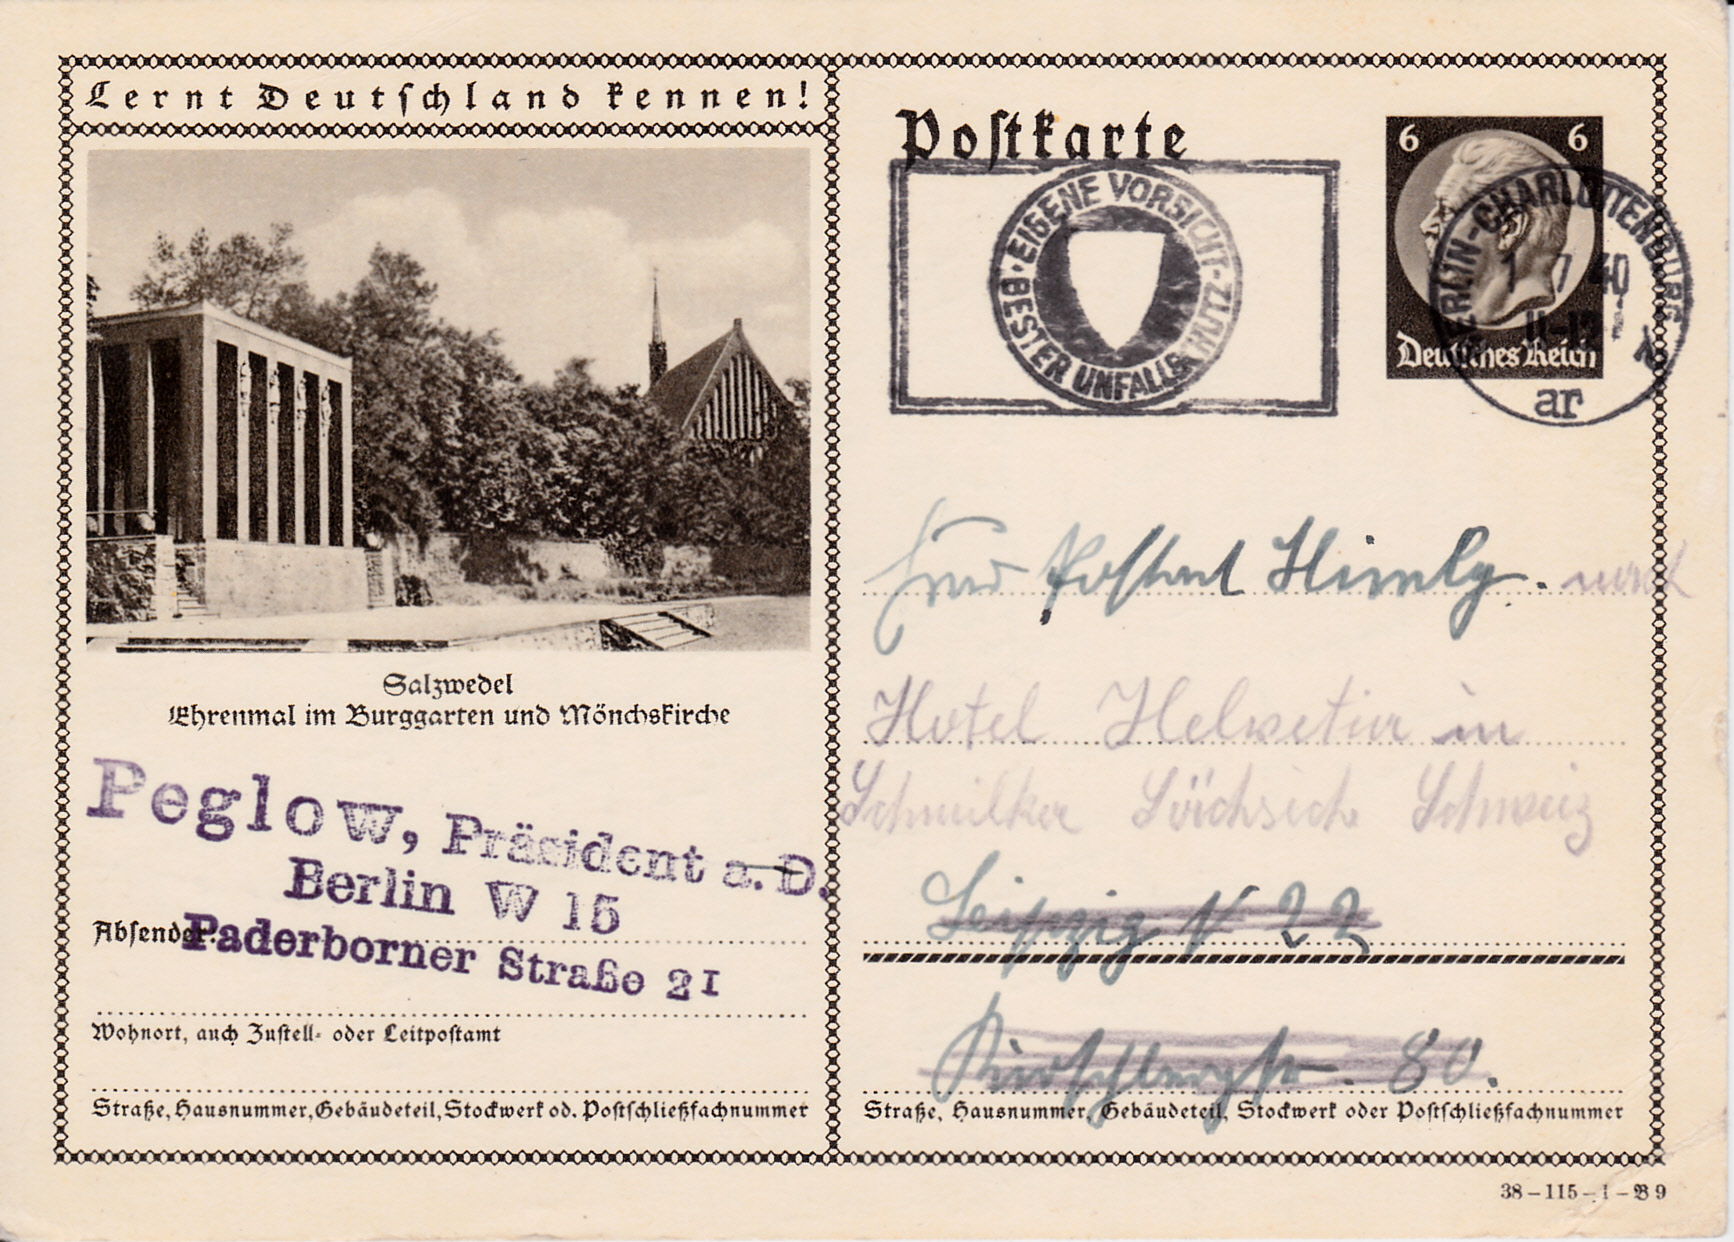 Lernt Deutschland kennen!
Salzwedel
Ehrenmal im Burggarten und Mönchskirche
Peglow, Präsident a.D.
Berlin W 15
Paderborner Straße 21
Absender:
Wohnort, auch Zustell- oder Leitpostamt
Straße, Hausnummer, Gebäudeteil, Stockwerk od. Postschließfachnummer
Postkarte
EIGENE VORSICHT · BESTER UNFALLSCHUTZ ·
6 6
Deutsches Reich
BERLIN-CHARLOTTENBURG 2
1 7 40
11-12
ar
Himly.
Hotel Helvetia in
Schmilka Sächsich Schweiz
Leipzig N 22
80.
Straße, Hausnummer, Gebäudeteil, Stockwerk oder Postschließfachnummer
38-115-1-B9